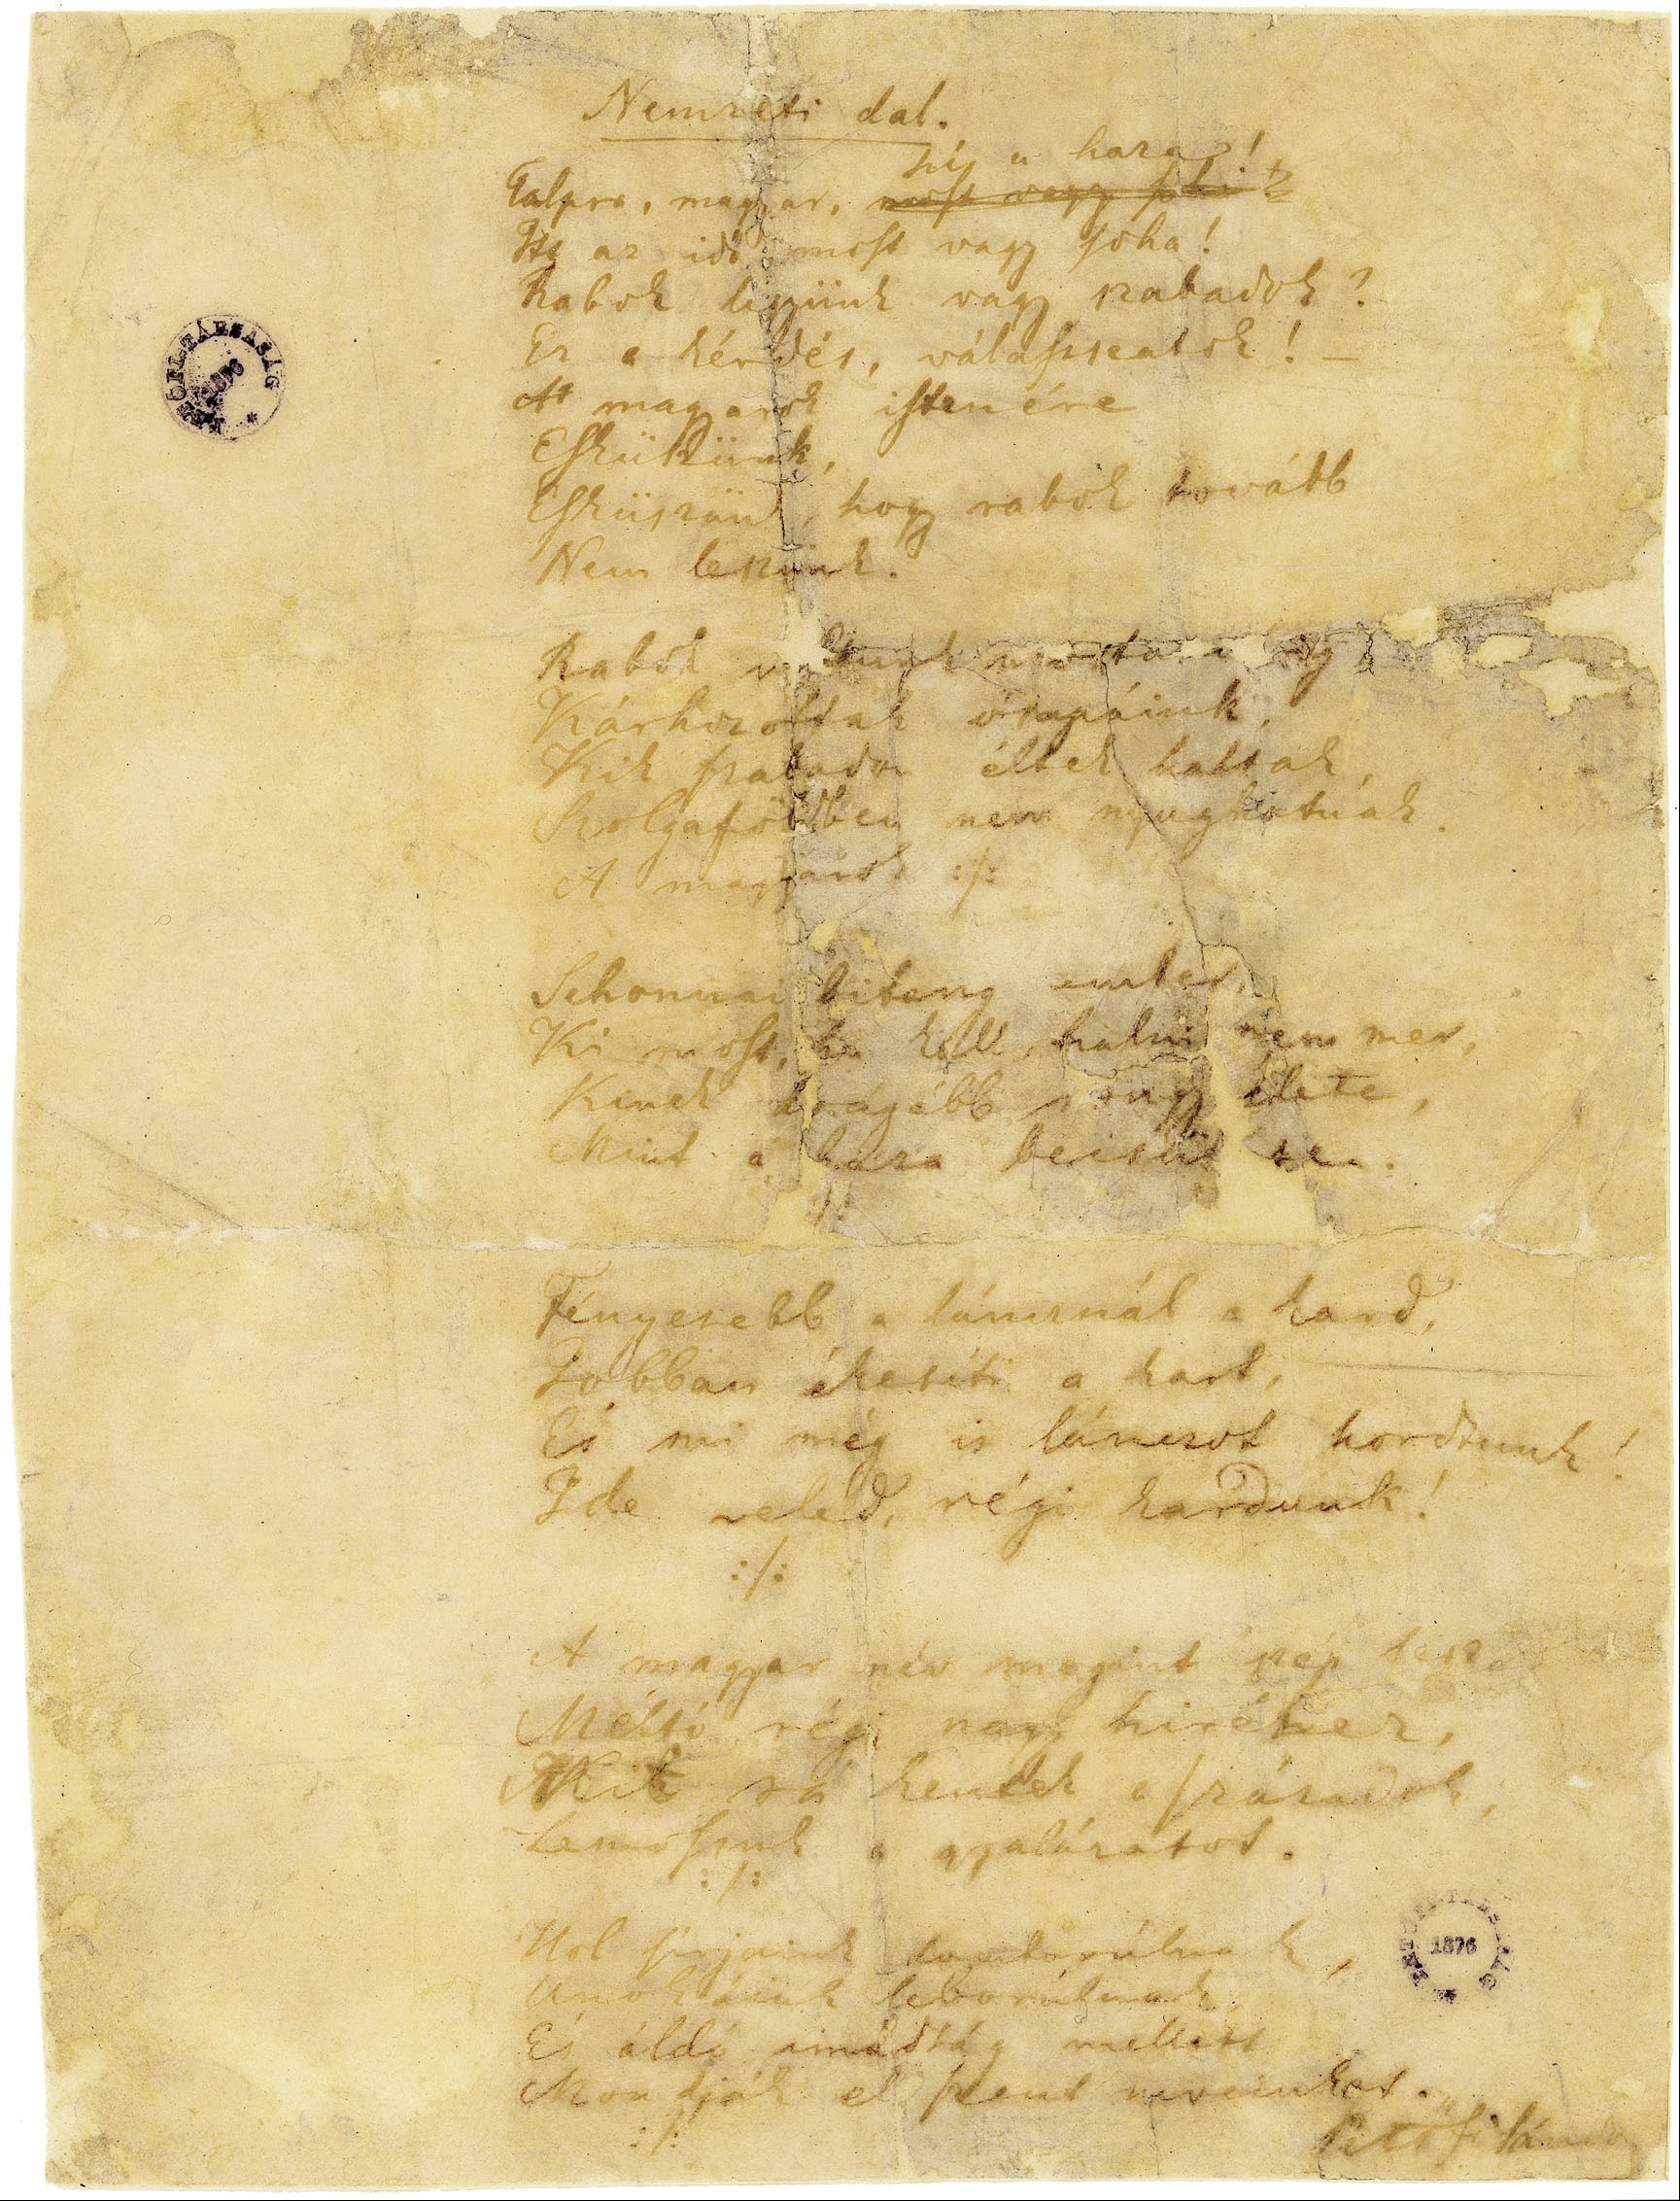 Nemzeti dal.
hí a haza!
Talpra, magyar, most vagy soha
Itt az idő, most vagy soha!
Rabok legyünk vagy szabadok?
Ez a kérdés, válasszatok! –
A magyarok istenére
Esküszünk,
Esküszünk, hogy rabok tovább
Nem leszünk.
Rabok voltunk mostanáig
Kárhozottak ősapáink,
Kik szabadon éltek haltak,
Szolgaföldben nem nyughatnak.
A magyarok :/:
Sehonnai bitang ember,
Ki most, ha kell halni nem mer,
Kinek drágább rongy élete,
Mint a haza becsülete.
:/:
Fényesebb a láncznál a kard,
Jobban ékesiti a kart,
És mi még is lánczot hordtunk!
Ide veled, régi kardunk!
:/:
A magyar név megint szép lesz
Méltó régi nagy hiréhez,
Mit rá kentek a századok,
Lemossuk a gyalázatot.
:/:
Hol sirjaink domborúlnak,
Unokáink leborúlnak,
És áldó imádság mellett
Mondják el szent neveinket.
:/:
Petőfi Sándor
PETŐFI-TÁRSASÁG
1876
PETŐFI-TÁRSASÁG
1876